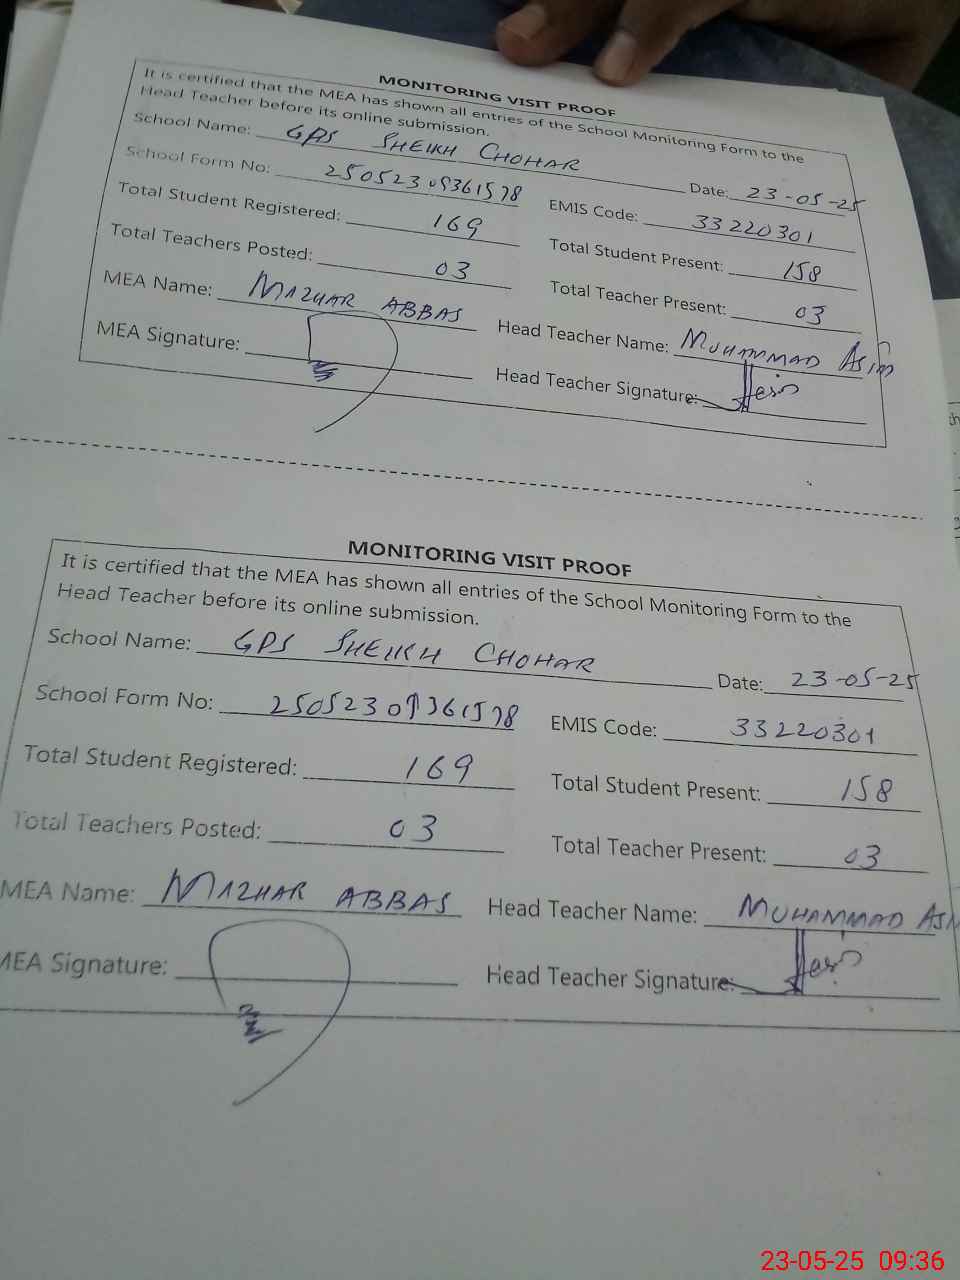 MONITORING VISIT PROOF
It is certified that the MEA has shown all entries of the School Monitoring Form to the
Head Teacher before its online submission.
School Name: GPS SHEIKH CHOHAR Date: 23-05-25
School Form No: 25052309361578 EMIS Code: 33220301
Total Student Registered: 169 Total Student Present: 158
Total Teachers Posted: 03 Total Teacher Present: 03
MEA Name: MAZHAR ABBAS Head Teacher Name: MUHAMMAD ASIM
MEA Signature: Head Teacher Signature:
MONITORING VISIT PROOF
It is certified that the MEA has shown all entries of the School Monitoring Form to the
Head Teacher before its online submission.
School Name: GPS SHEIKH CHOHAR Date: 23-05-25
School Form No: 25052309361578 EMIS Code: 33220301
Total Student Registered: 169 Total Student Present: 158
Total Teachers Posted: 03 Total Teacher Present: 03
MEA Name: MAZHAR ABBAS Head Teacher Name: MUHAMMAD
MEA Signature: Head Teacher Signature:
23-05-25 09:36